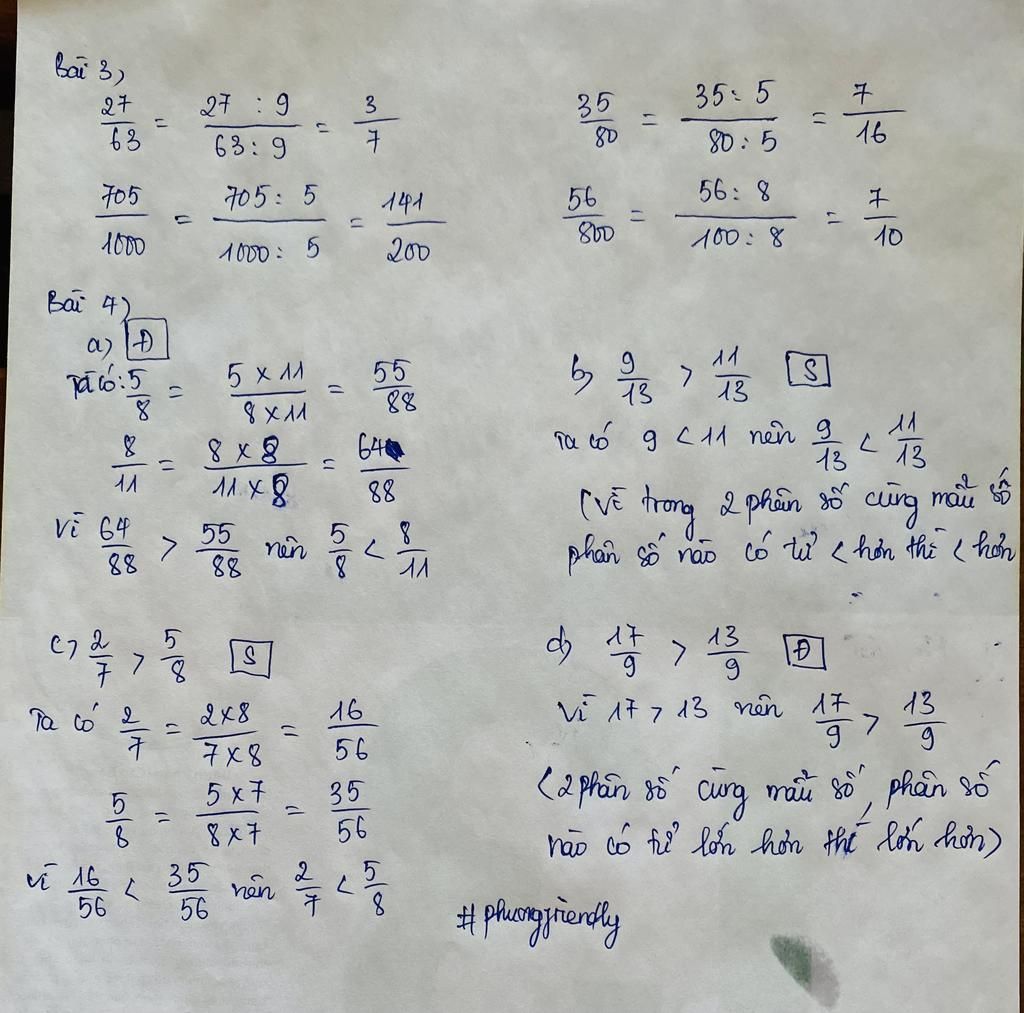 Bài 3,
27/63 = 27 : 9/63 : 9 = 3/7
35/80 = 35 : 5/80 : 5 = 7/16
705/1000 = 705 : 5/1000 : 5 = 141/200
56/800 = 56 : 8/100 : 8 = 7/10
Bài 4,
a, Đ
Ta có: 5/8 = 5 x 11/8 x 11 = 55/88
8/11 = 8 x 8/11 x 8 = 64/88
Vì 64/88 > 55/88 nên 5/8 < 8/11
b, 9/13 > 11/13 S
Ta có 9 < 11 nên 9/13 < 11/13
(Vì trong 2 phân số cùng mẫu số
phân số nào có tử < hơn thì < hơn
c, 2/7 > 5/8 S
Ta có 2/7 = 2 x 8/7 x 8 = 16/56
5/8 = 5 x 7/8 x 7 = 35/56
Vì 16/56 < 35/56 nên 2/7 < 5/8
d, 17/9 > 13/9 Đ
Vì 17 > 13 nên 17/9 > 13/9
(2 phân số cùng mẫu số, phân số
nào có tử lớn hơn thì lớn hơn)
#phuongfriendly